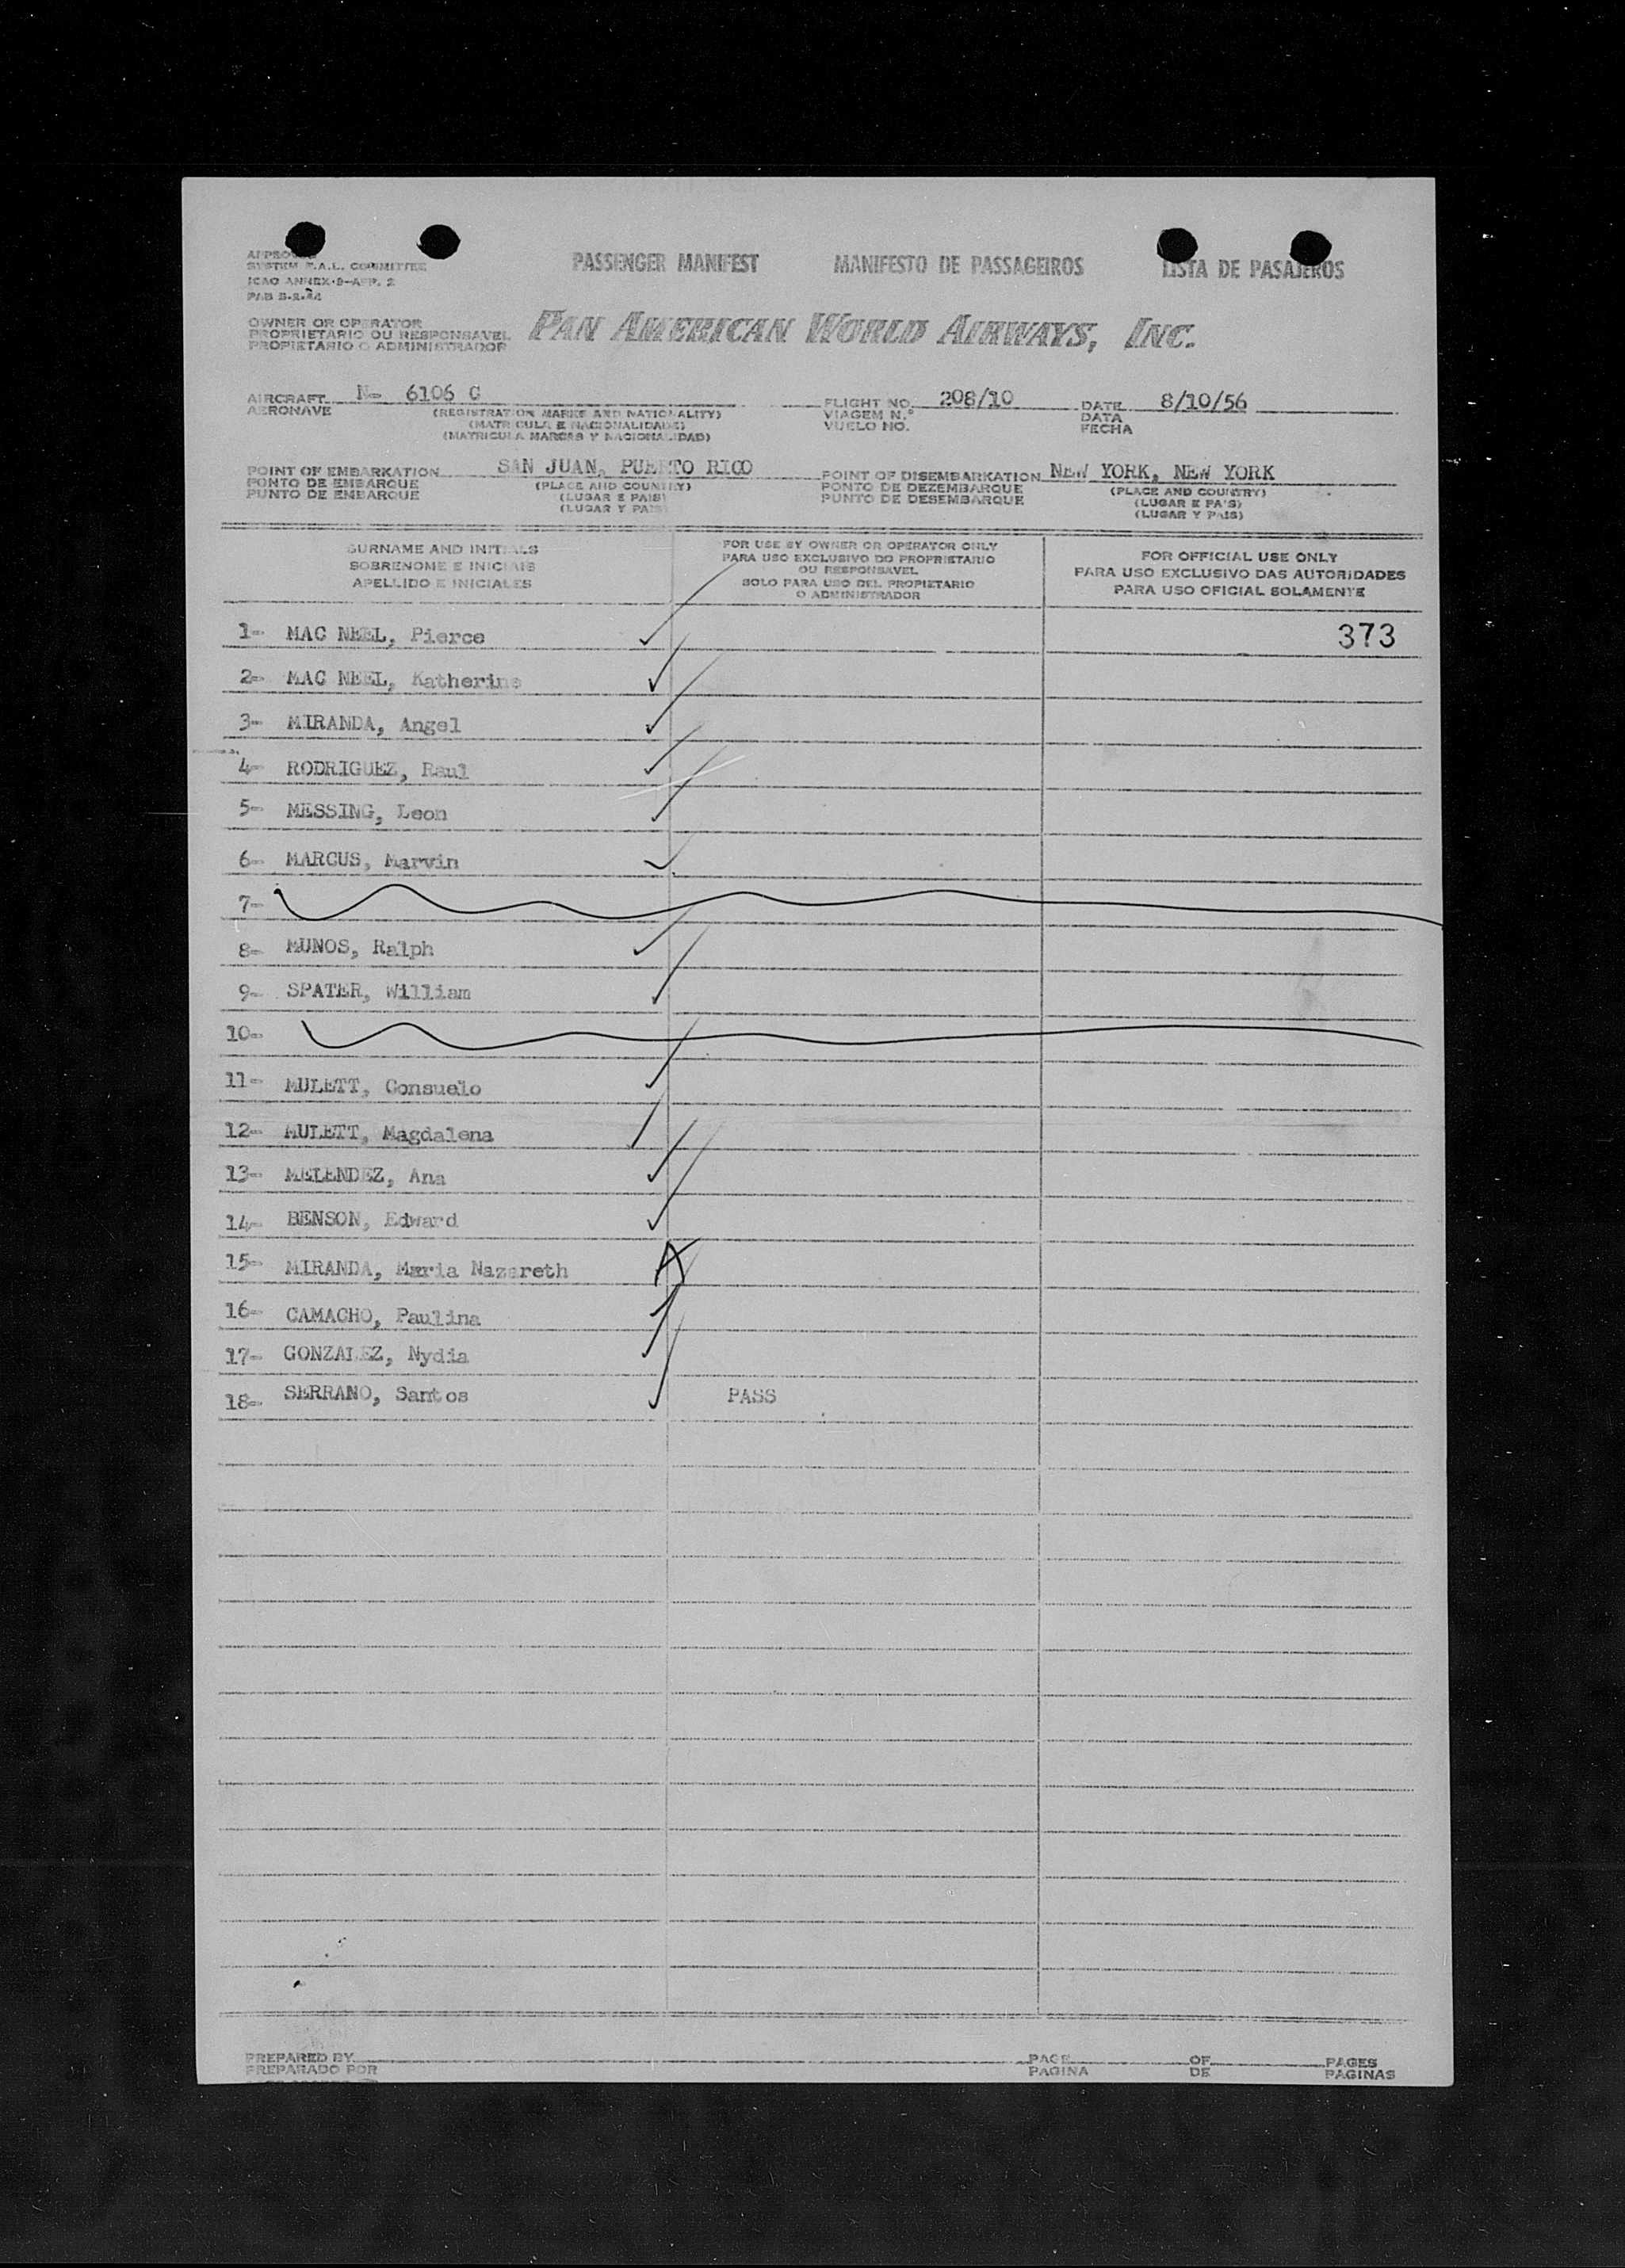 PASSENGER MANIFEST MANIFESTO DE PASSAGEIROS LISTA DE PASAJEROS
SYSTEM F.A.L. COMMITTEE
ICAO ANNEX-9-APP. 2
OWNER OR OPERATOR
PROPRIETARIO OU RESPONSAVEL
PROPIETARIO O ADMINISTRADOR
PAN AMERICAN WORLD AIRWAYS, INC.
AIRCRAFT N- 6106 C FLIGHT NO. 208/10 DATE 8/10/56
AERONAVE (REGISTRATION MARKS AND NATIONALITY) VIAGEM N.º DATA
(MATRICULA E NACIONALIDADE) VUELO NO. FECHA
(MATRICULA MARCAS Y NACIONALIDAD)
POINT OF EMBARKATION SAN JUAN, PUERTO RICO POINT OF DISEMBARKATION NEW YORK, NEW YORK
PONTO DE EMBARQUE (PLACE AND COUNTRY) PONTO DE DEZEMBARQUE (PLACE AND COUNTRY)
PUNTO DE EMBARQUE (LUGAR E PAIS) PUNTO DE DESEMBARQUE (LUGAR E PAIS)
(LUGAR Y PAIS) (LUGAR Y PAIS)
SURNAME AND INITIALS
SOBRENOME E INICIAIS
APELLIDO E INICIALES
FOR USE BY OWNER OR OPERATOR ONLY
PARA USO EXCLUSIVO DO PROPRIETARIO
OU RESPONSAVEL
SOLO PARA USO DEL PROPIETARIO
O ADMINISTRADOR
FOR OFFICIAL USE ONLY
PARA USO EXCLUSIVO DAS AUTORIDADES
PARA USO OFICIAL SOLAMENTE
1- MAC NEEL, Pierce 373
2- MAC NEEL, Katherine
3- MIRANDA, Angel
4- RODRIGUEZ, Raul
5- MESSING, Leon
6- MARCUS, Marvin
7-
8- MUNOS, Ralph
9- SPATER, William
10-
11- MULETT, Consuelo
12- MULETT, Magdalena
13- MELENDEZ, Ana
14- BENSON, Edward
15- MIRANDA, Maria Nazareth
16- CAMACHO, Paulina
17- GONZALEZ, Nydia
18- SERRANO, Santos PASS
PREPARED BY PAGE OF PAGES
PREPARADO POR PAGINA DE PAGINAS